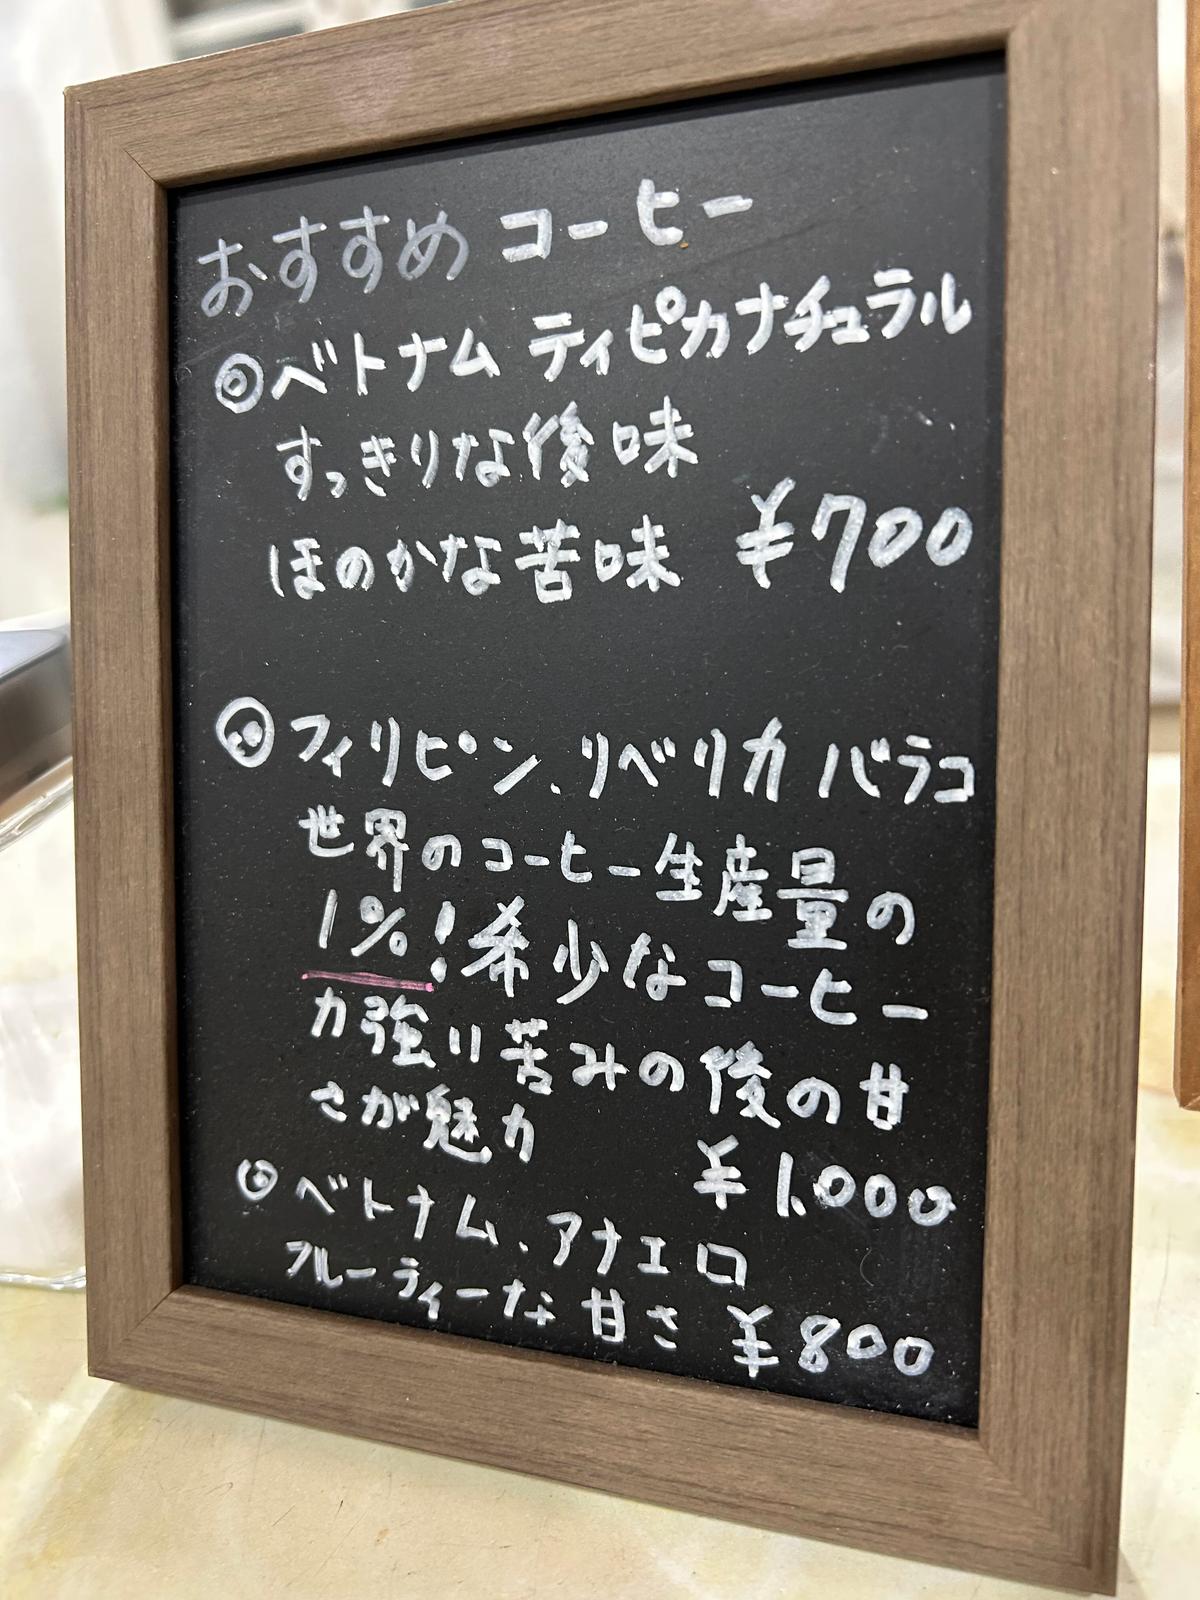 おすすめ コーヒー
◎ベトナム ティピカナチュラル
すっきりな後味
ほのかな苦味 ¥700
◎フィリピン、リベリカ バラコ
世界のコーヒー生産量の
1%!希少なコーヒー
力強い苦みの後の甘
さが魅力
¥1,000
◎ベトナム、アナエロ
フルーティーな甘さ ¥800